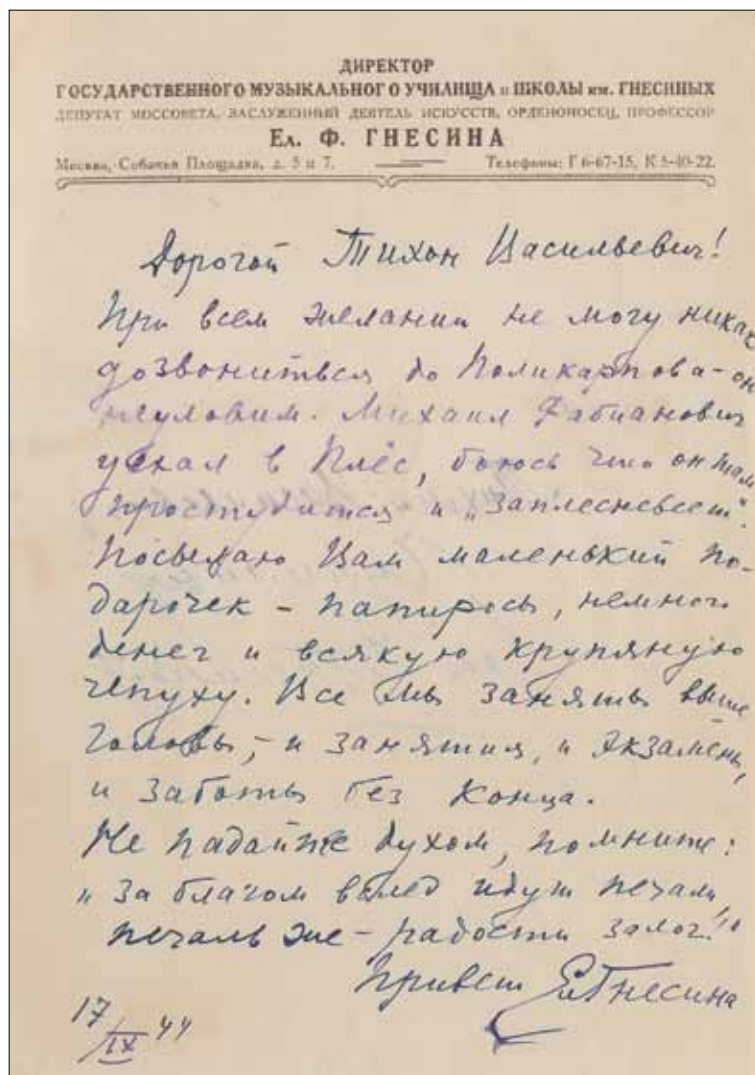 ДИРЕКТОР
ГОСУДАРСТВЕННОГО МУЗЫКАЛЬНОГО УЧИЛИЩА и ШКОЛЫ им. ГНЕСИНЫХ
ДЕПУТАТ МОССОВЕТА, ЗАСЛУЖЕННЫЙ ДЕЯТЕЛЬ ИСКУССТВ, ОРДЕНОНОСЕЦ, ПРОФЕССОР
Ел. Ф. ГНЕСИНА
Москва, Собачья Площадка, д. 5 и 7. Телефоны: Г 6-67-15, К 5-40-22.
Дорогой Тихон Васильевич!
При всем желании не могу никак
дозвониться до Поликарпова – он
неуловим. Михаил Фабианович
уехал в Плёс, боюсь что он там
простудится и „заплесневеет".
Посылаю Вам маленький по-
дарочек – папиросы, немного
денег и всякую крупяную
чепуху. Все мы заняты выше
головы, – и занятия, и экзамены,
и заботы без конца.
Не падайте духом, помните:
„За благом вслед идут печали,
печаль же – радости залог!"
Привет Ел Гнесина
17/IX 44